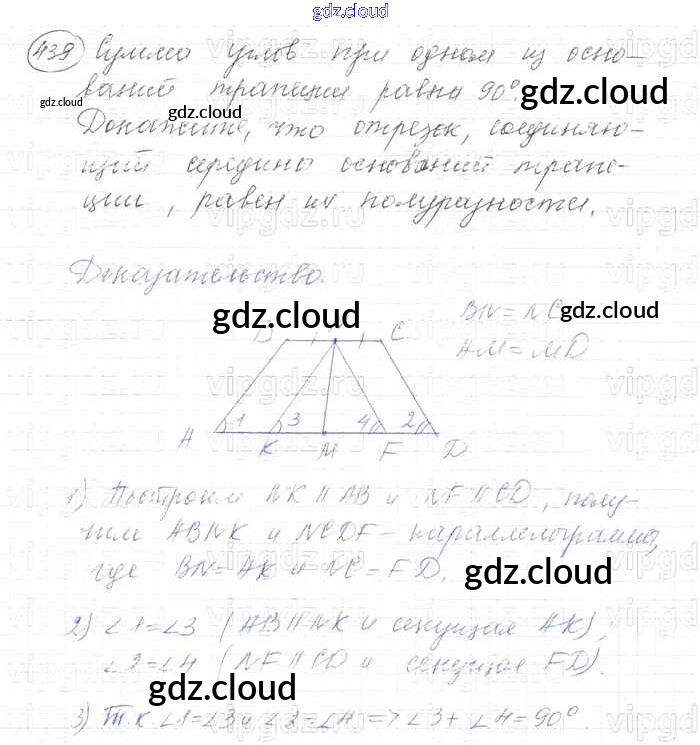 gdz.cloud
439 Сумма углов при одном из осно-
ваний трапеции равна 90°.
gdz.cloud gdz.cloud
Докажите, что отрезок, соединяю-
щий середины оснований трапе-
ции, равен их полуразности.
Доказательство.
gdz.cloud
BN = NC
gdz.cloud
AM = MD
B C
1 3 4 2
A K M F D
1) Построим NK || AB и NF || CD, полу-
чим ABNK и NCDF - параллелограммы,
где BN = AK и NC = FD.
gdz.cloud
2) ∠1 = ∠3 (AB || NK и секущая AK),
∠2 = ∠4 (NF || CD и секущая FD).
gdz.cloud
3) Т.к. ∠1 = ∠3 и ∠2 = ∠4 => ∠3 + ∠4 = 90°